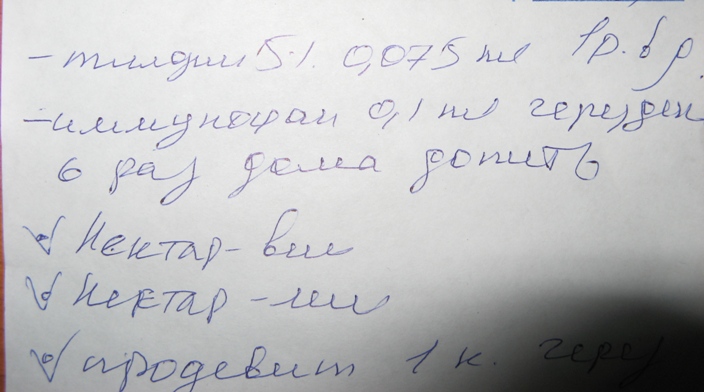 - тилдин 5%. 0,075 мл 1 р. в д.
- иммунофан 0,1 мл через ден
6 раз дома допить
Нектар-вит
Нектар -мин
продевит 1 к. через